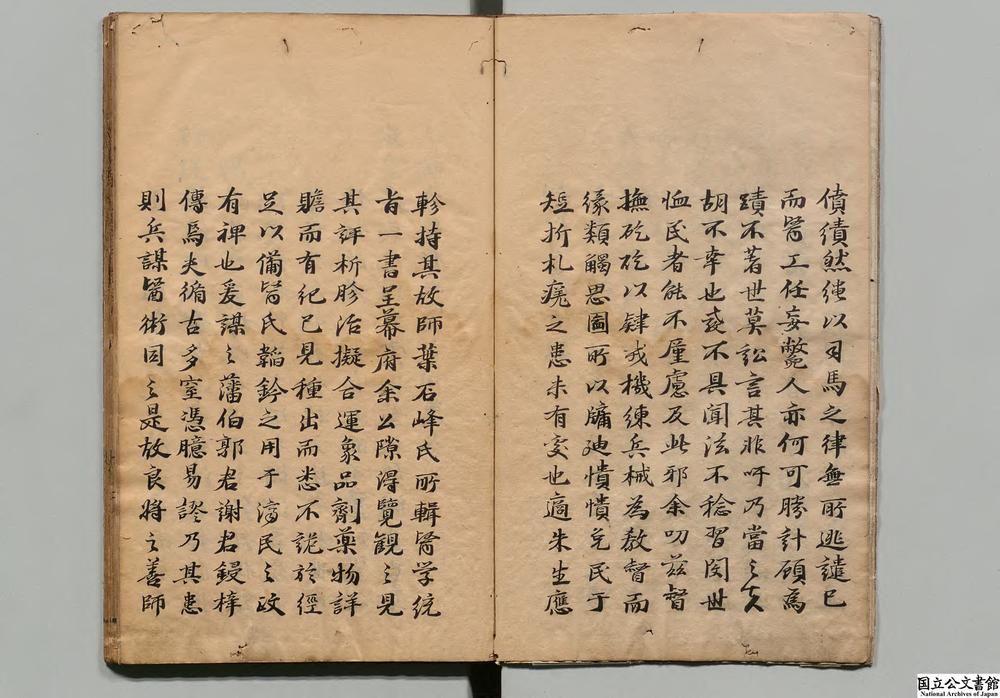 債績然繩以司馬之律無所逃譴已
而醫工任妄斃人亦何可勝計顧為
蹟不著世莫訟言其非吁乃當之者
胡不幸也爰不具聞法不稔習閔世
恤民者能不厪慮及此邪余叨茲督
撫矻矻以肄戎機練兵械為教督而
緣類觸思圖所以牖迪憒憒免民于
短折札瘥之患未有叓也適朱生應
軫持其故師葉石峰氏所輯醫学統
旨一書呈幕府余公隙得覽觀之見
其評析胗治擬合運象品劑藥物詳
贍而有紀已見種出而悉不詭於經
足以備醫氏韜鈐之用于濟民之政
有裨也爰謀之藩伯郭君謝君鋟梓
傳焉夫循古多窒憑臆易謬乃其患
則兵謀醫術同之是故良將之善師
国立公文書館
National Archives of Japan